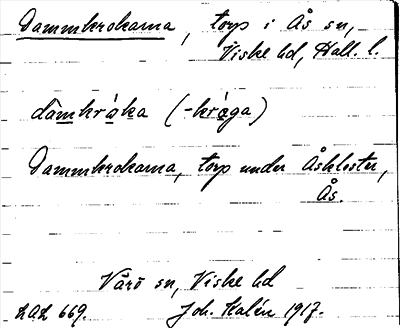 Dammkrokarna, torp i Ås sn,
Viske hd, Hall. l.
dàmkrȧka (-krȧga)
Dammkrokarna, torp under Åskloster,
Ås.
Värö sn, Viske hd
LAL 669. Joh. Kalén 1917.